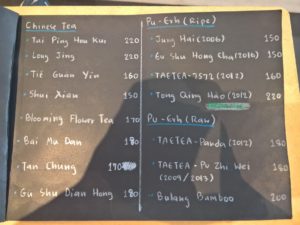 Chinese Tea
Tai Ping Hou Kui 220
Long Jing 220
Tiě Guan Yin 160
Shui Xian 150
Blooming Flower Tea 170
Bai Mu Dan 180
Tan Chung 190
Gu Shu Dian Hong 180
Pu-Erh (Ripe)
Jung Hai (2006) 150
Gu Shu Hong Cha (2016) 150
TAETEA-7572 (2012) 160
Tong Qing Hào (2012) 220
Pu-Erh (Raw)
TAETEA-Panda (2012) 180
TAETEA-Pu Zhi Wei 180
(2009/2013)
Bulang Bamboo 200